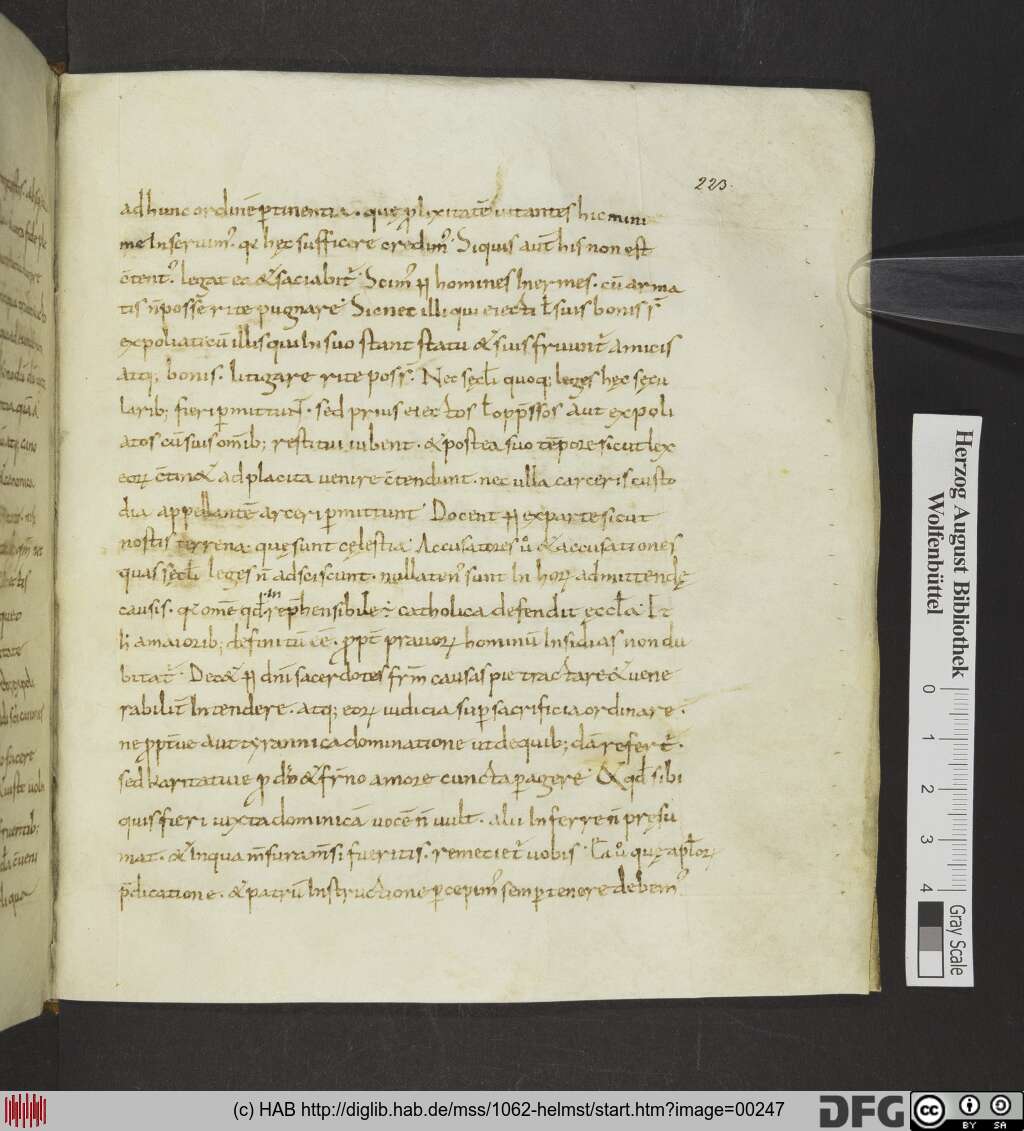 223.
ad hunc ordinē ꝑtinentia. quę ꝓlixitatē uitantes hic mini
me Inseruim᷒. qꝛ hęc sufficere credim᷒. Siquis aut̄ his non est
c̄tent᷒. legat ec & saciabit᷒. Scim᷒ .n. homines Inermes. cū arma
tis n̄ posse rite pugnare. Sic nec illi qui eiecti ł suis bonis s̄
expoliati cū illis qui In suo stant statu & suis fruunt᷒ amicis
atq; bonis. litigare rite poss̄. Nec sęcłi quoq; leges hęc sęcu
larib; fieri ꝑmittun̄t. sed prius eiectos ł opp̄ssos aut expoli
atos cū suis om̄ib; restitui iubent. & postea suo tēpore sicut lex
eoꝝ c̄tin& ad placita uenire c̄tendunt. nec ulla carceris custo
dia appellantē arceri ꝑmittunt. Docent .n. ex parte sicut
nostis terrena. quę sunt cęlestia. Accusatores ů & accusationes
quas sęcłi leges n̄ adsciscunt. nullaten᷒ sunt In hoꝝ admittendę
causis. qꝛ om̄e qđ inrep̄hensibile ē catholica defendit eccła. Et
h̄ a maiorib; definitū ēē. ꝓpt̄ prauoꝝ hominū Insidias non du
bitat᷒. Dec& .n. dn̄i sacerdotes fr̄m causas pie tractare & uene
rabilit̄ Intendere. atq; eoꝝ iudicia suꝑ sacrificia ordinare.
ne ꝓpt̄ue aut tyrannica dominatione ut de quib;dā refert᷒.
sed karitatiue ꝓ dō & fr̄no amore cuncta ꝑagere. & qđ sibi
quis fieri iuxta dominicā uocē n̄ uult. alii Inferre n̄ pręsu
mat. & In qua m̄sura m̄si fueritis. remetiet᷒ uobis. Ea ů quę apłoꝝ
p̄dicatione. & patrū Instructione ꝑcepim᷒ semꝑ tenere debem᷒
Herzog August Bibliothek
Wolfenbüttel
0 1 2 3 4
Gray Scale
(c) HAB http://diglib.hab.de/mss/1062-helmst/start.htm?image=00247
DFG
cc BY SA